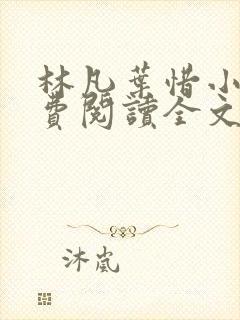 林凡葉惜小
費閱讀全文
沐嵐